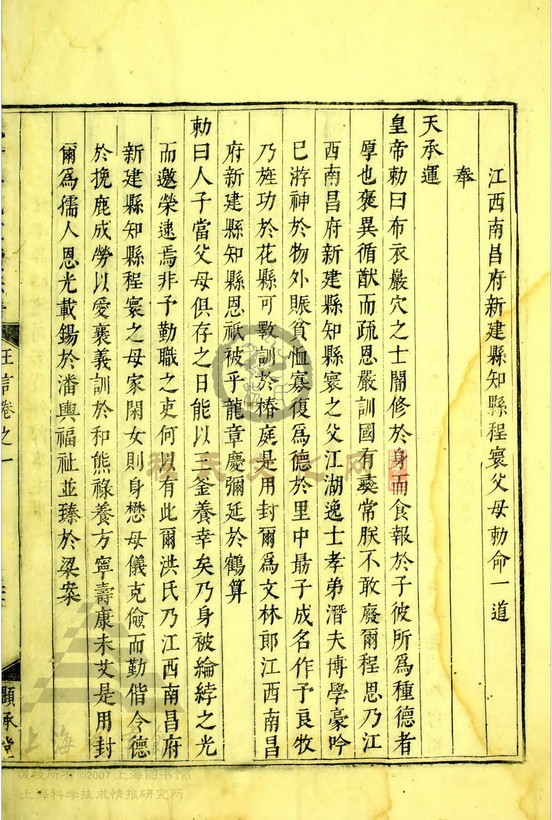 江西南昌府新建縣知縣程寰父母勅命一道
奉
天承運
皇帝勅曰布衣嚴穴之士闇修於身而食報於子彼所為種德者
厚也褒異循猷而疏恩嚴訓國有彝常朕不敢廢爾程思乃江
西南昌府新建縣知縣寰之父江湖逸士孝弟潛夫博學豪吟
已游神於物外賑貧恤寡復為德於里中最子成名作予良牧
乃旌功於花縣可斁訓於椿庭是用封爾為文林郎江西南昌
府新建縣知縣恩祇被乎龍章慶彌延於鶴算
勅曰人子當父母俱存之日能以三釜養幸矣乃身被綸綍之光
而邀榮逮焉非予勤職之吏何以有此爾洪氏乃江西南昌府
新建縣知縣程寰之母家閑女則身懋母儀克儉而勤偕令德
於挽鹿成勞以愛裒義訓於和熊祿養方寧壽康未艾是用封
爾為孺人恩光載錫於潘輿福祉並臻於梁案
王言卷之一
顯承堂
版权所有©2007上海图书馆
上海科学技术情报研究所